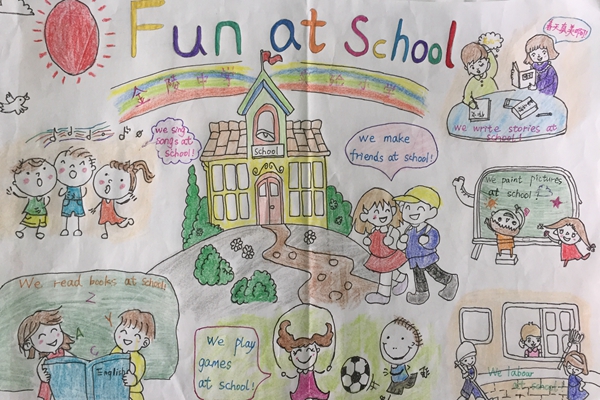 Fun at School
春天真美啊!
we write stories at
school!
School
we sing
songs at
school!
we make
friends at school!
we paint pictures
at school!
We read books at school!
Z
A
Y
C
English
We play
games
at school!
We labour
at school!